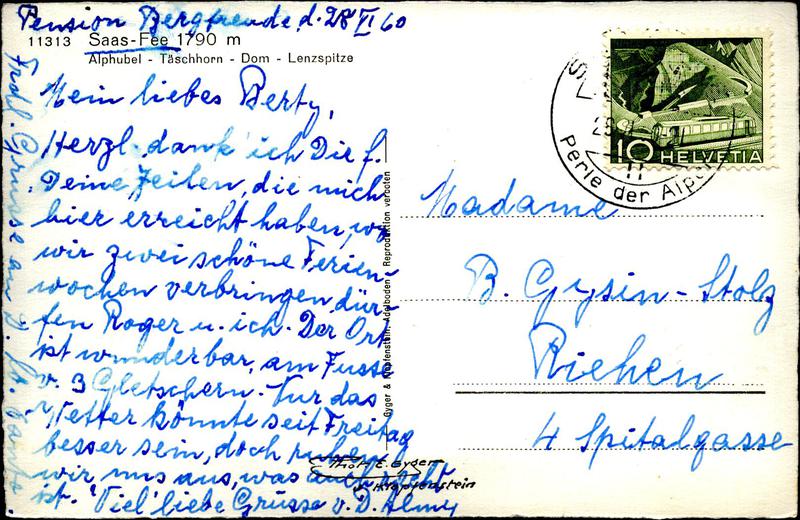 Pension Bergfreude, d. 28 VI 60
11313 Saas-Fee 1790 m
Alphubel - Täschhorn - Dom - Lenzspitze
Mein liebes Berty,
Herzl. dank' ich Dir f.
Deine Zeilen, die mich
hier erreicht haben, wo
wir zwei schöne Ferien-
wochen verbringen dür-
fen Roger u. ich. Der Ort
ist wunderbar, am Fusse
v. 3 Gletschern. Nur das
Wetter könnte seit Freitag
besser sein, doch ruhen
wir uns aus, was auch recht
ist. Viel liebe Grüsse v. D.
Grüsse an D.
Gyger & Klopfenstein, Adelboden Reproduktion verboten
Photo E. Gyger
Klopfenstein
HELVETIA
10
Perle der Alpen
Madame
B. Gysin-Stolz
Riehen
4 Spitalgasse